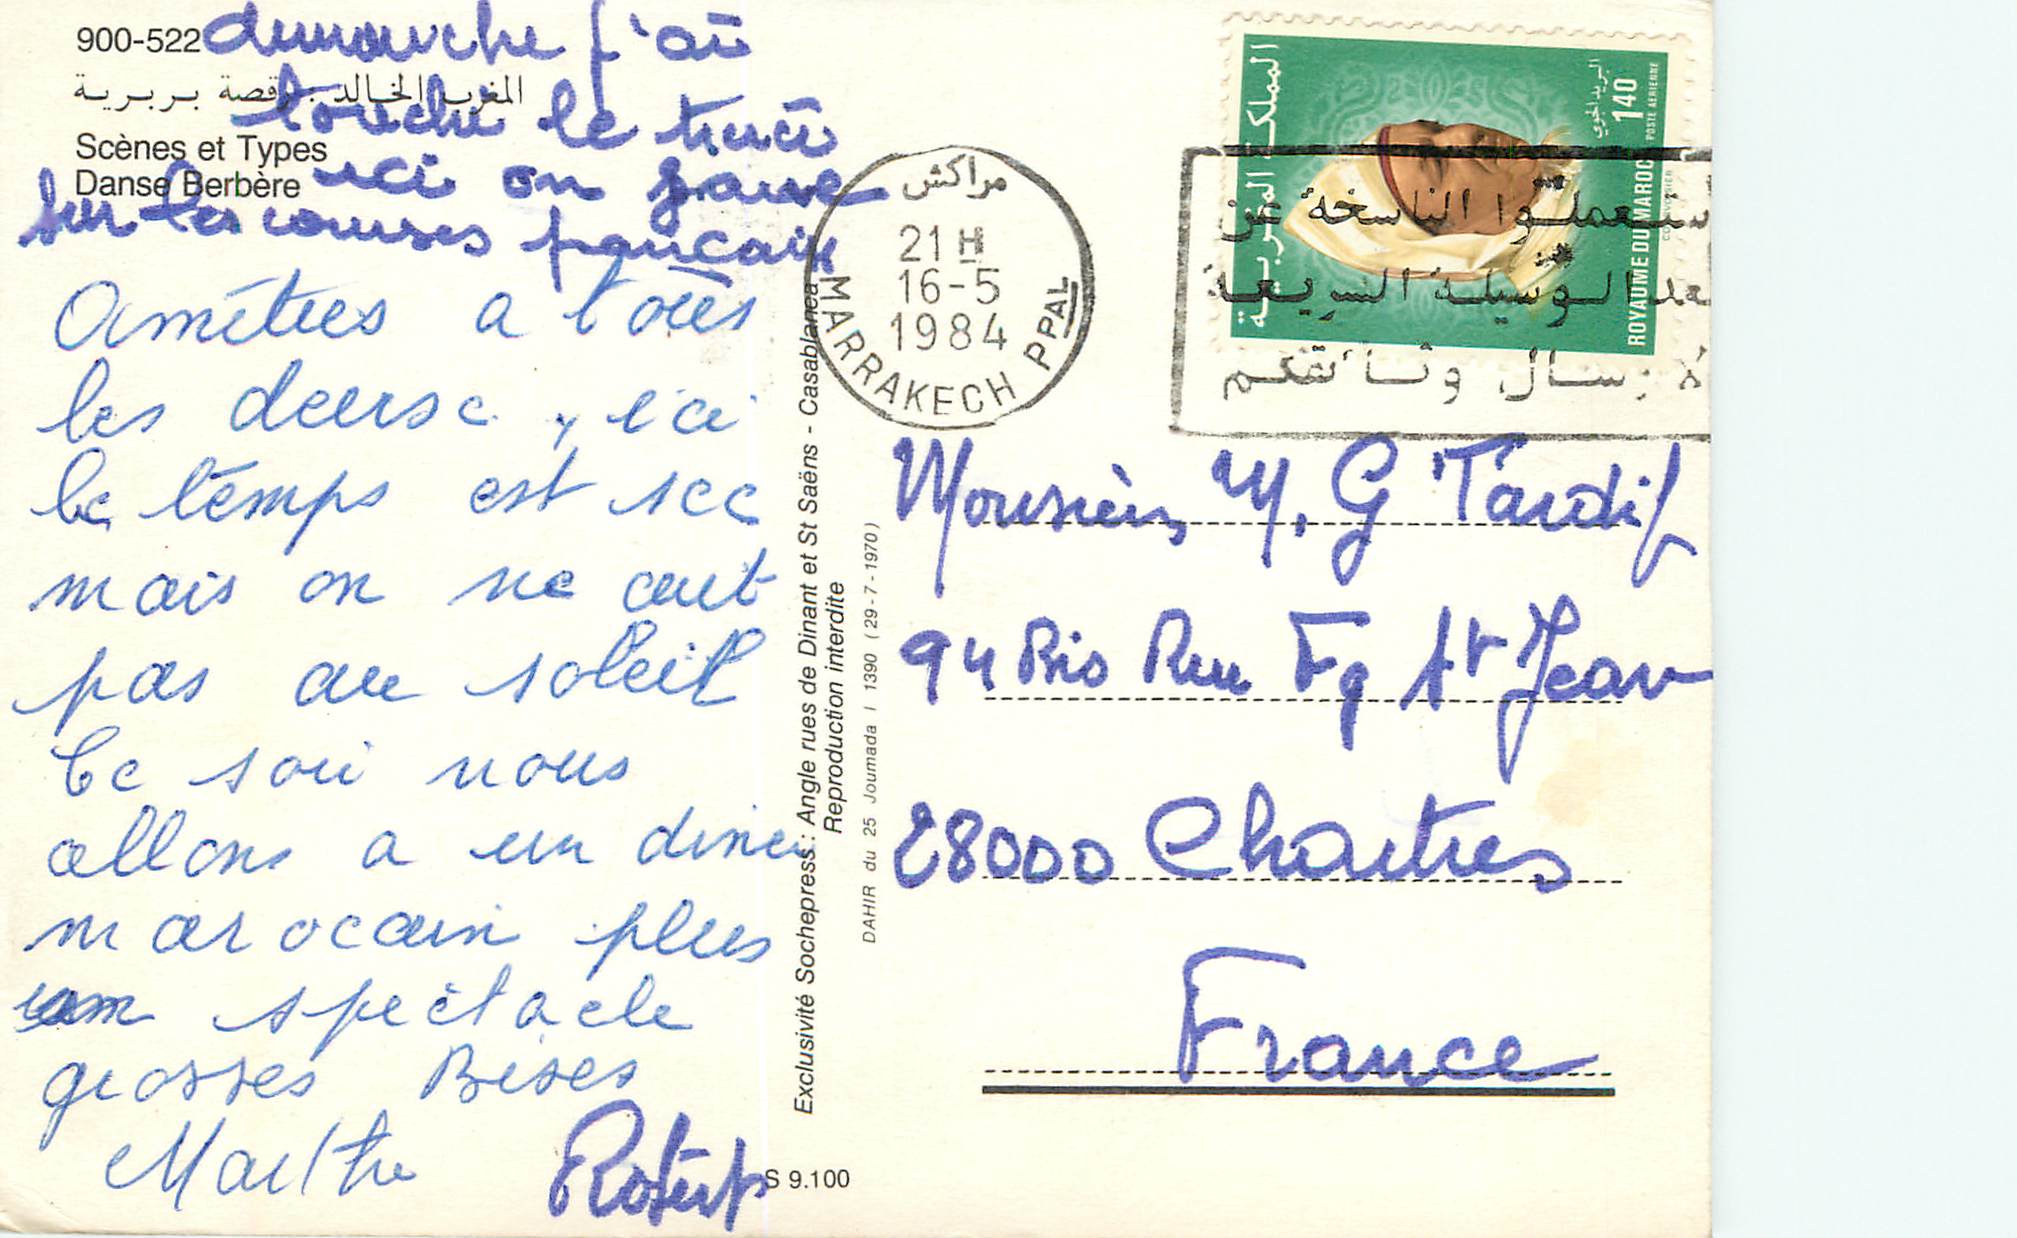 dimanche j'ai
touché le tiercé
ici on joue
sur les courses français
900-522
المغرب الخالد : رقصة بربرية
Scènes et Types
Danse Berbère
Amitiés a tous
les deux, ici
le temps est sec
mais on ne cuit
pas au soleil
Ce soir nous
allons a un diner
marocain plus
un spectacle
grosses Bises
Marthe
Robert
S 9.100
Exclusivité Sochepress : Angle rues de Dinant et St Saëns - Casablanca
Reproduction interdite
DAHIR du 25 Joumada I 1390 (29-7-1970)
مراكش
21 H
16-5
1984
MARRAKECH PPAL
المملكة المغربية
البريد الجوي
1,40
POSTE AERIENNE
ROYAUME DU MAROC
الوسيلة السريعة
Monsieur M, G Tardif
94 Bis Rue Fg St Jean
28000 Chartres
France